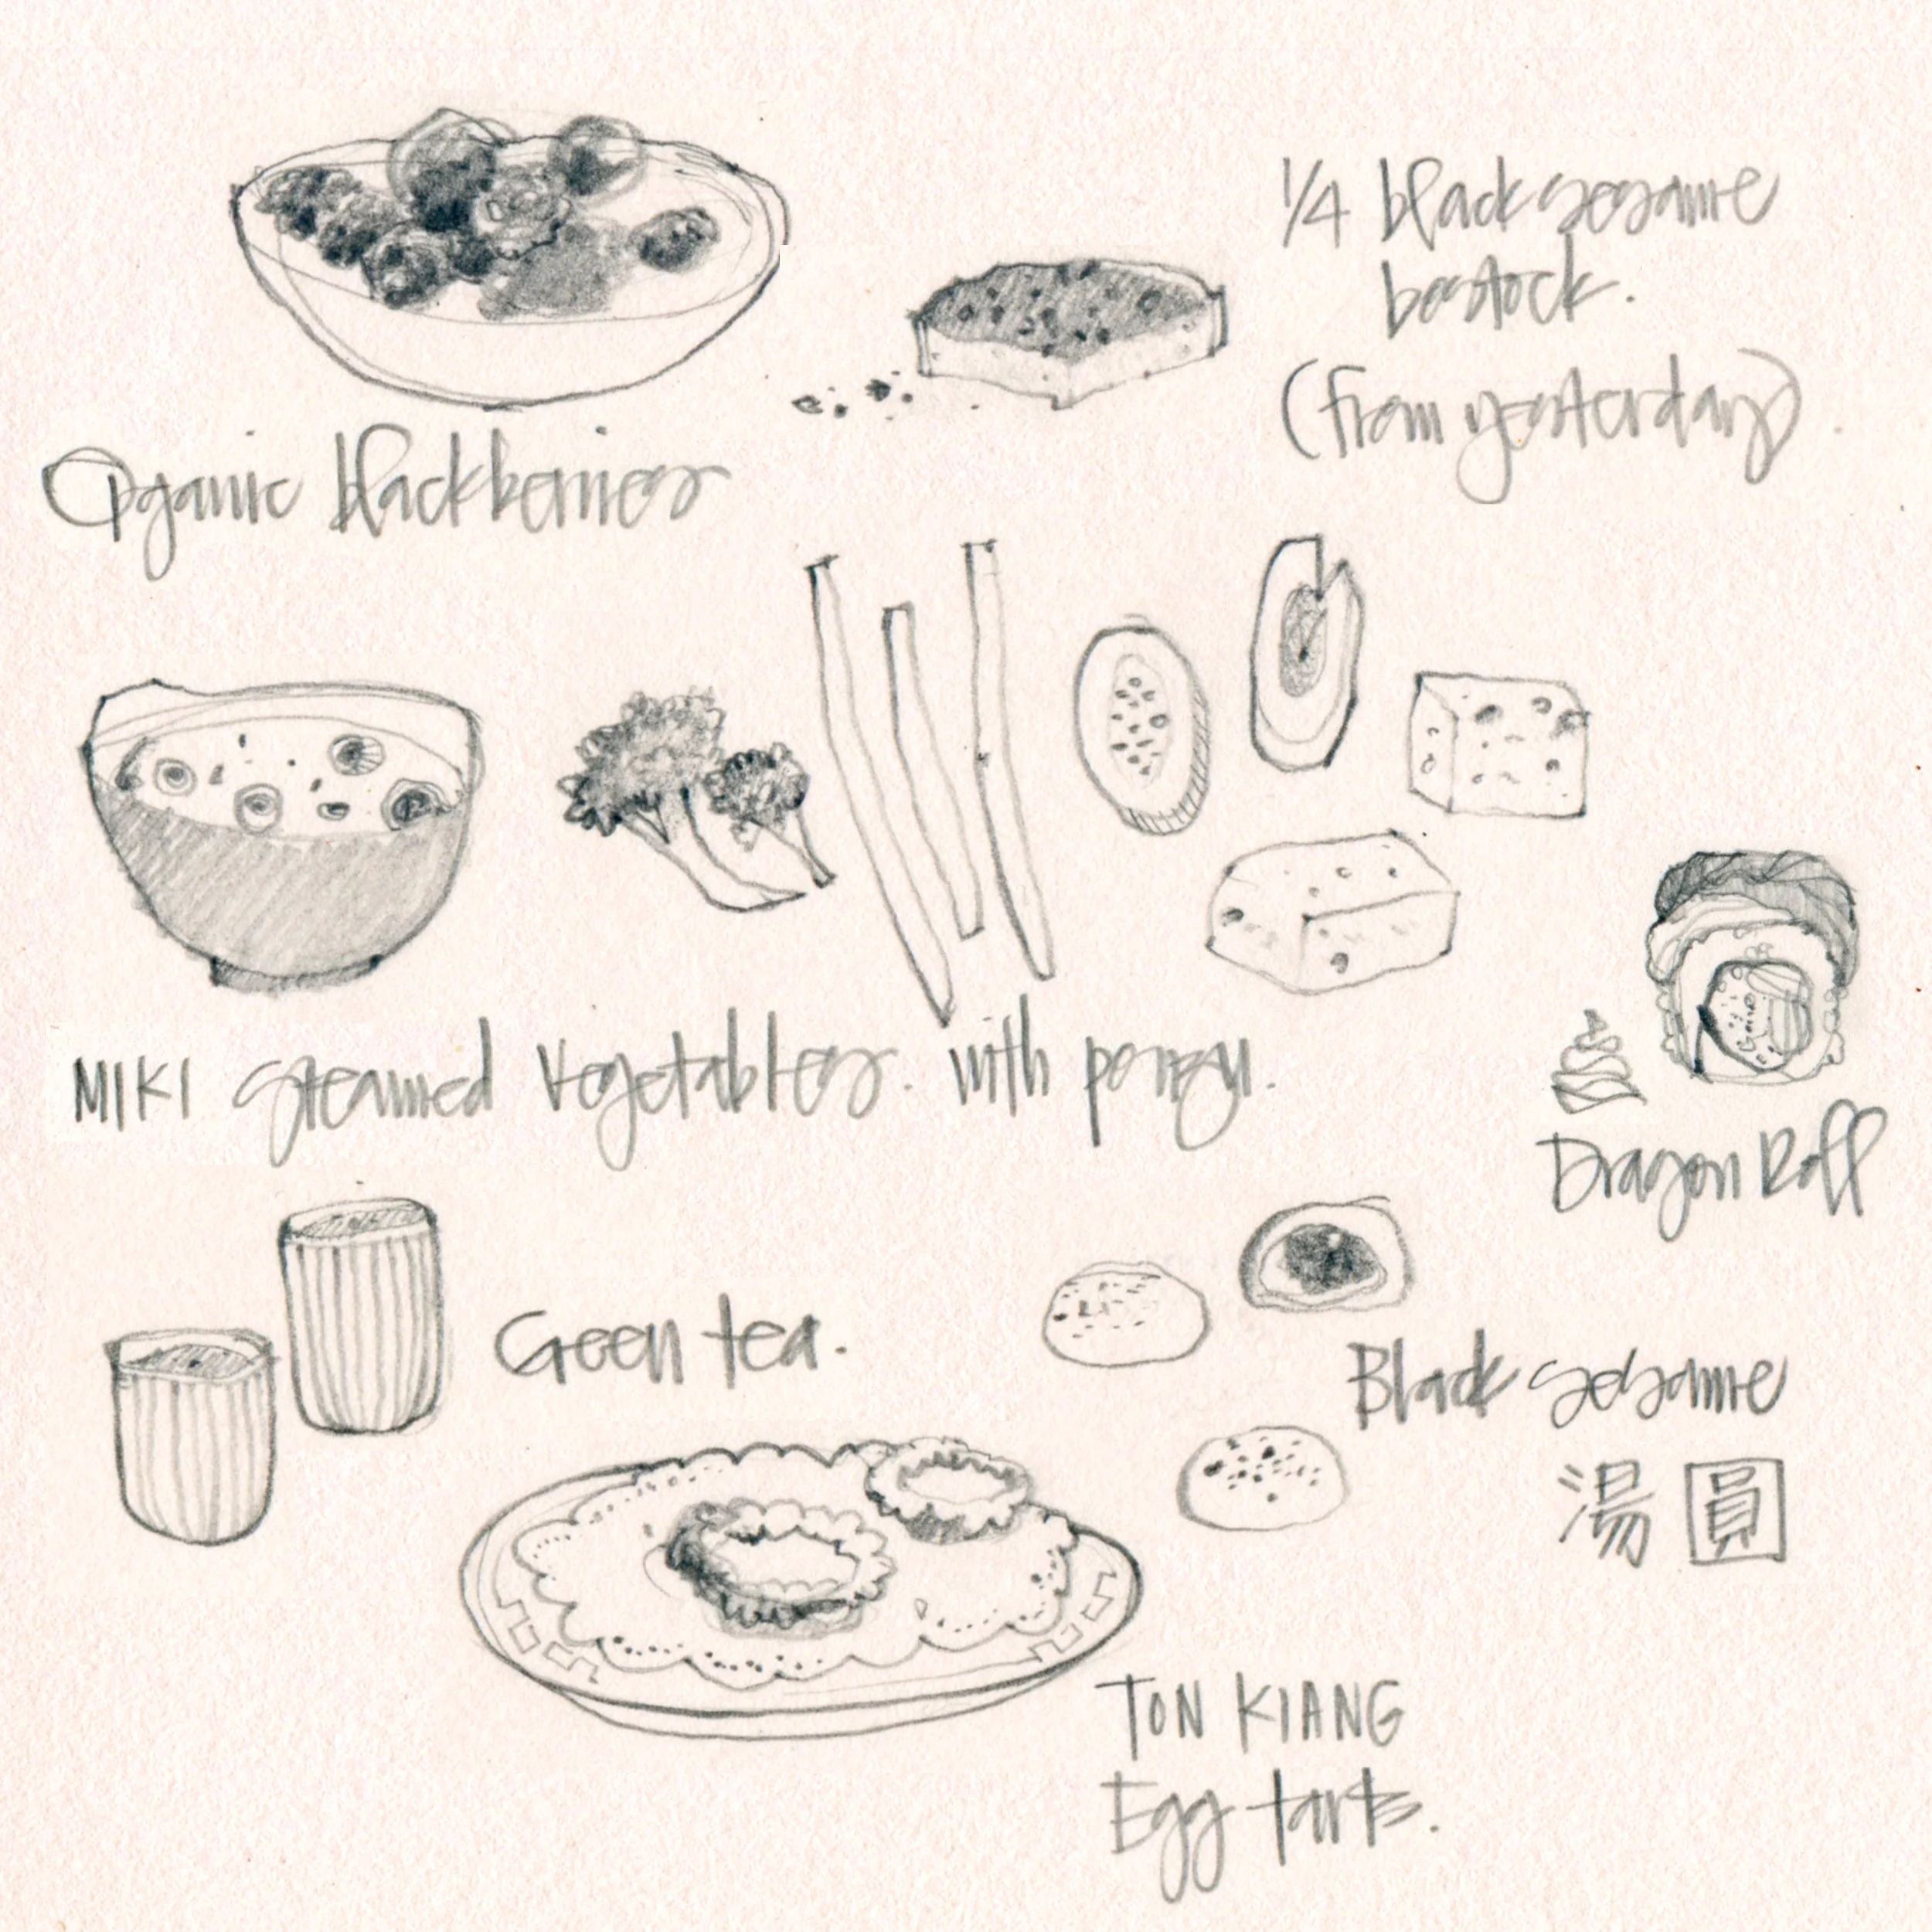 Organic blackberries
1/4 black sesame
bostock.
(from yesterday)
MIKI steamed vegetables. with ponzu.
Dragon Roll
Green tea.
Black sesame
湯圓
TON KIANG
Egg tarts.